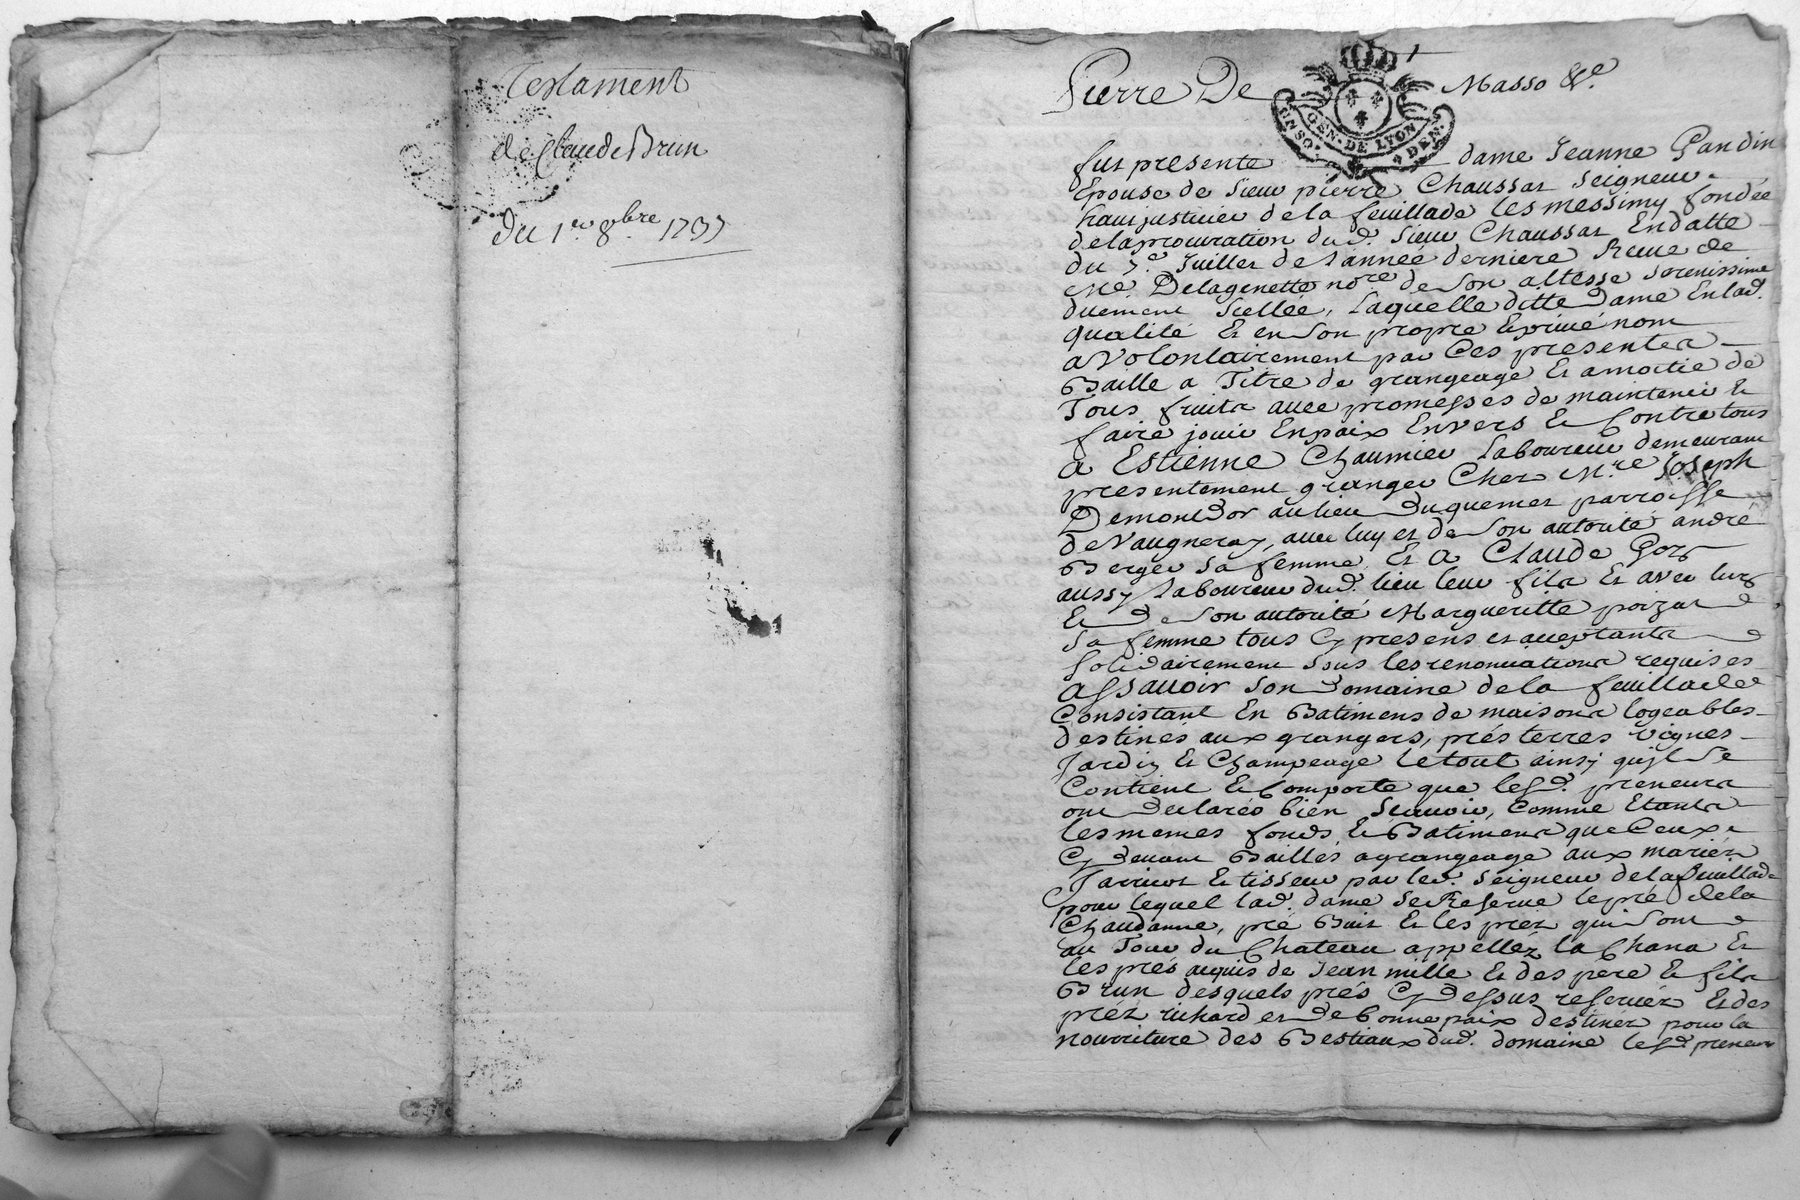 Testament
de Claude Brun
du 1.er 8.bre 1737
Pierre De Masso &c.
GEN. DE LYON
fut presente dame Jeanne Gandin
Epouse de Sieur pierre Chaussat Seigneur
haut justicier de la feuillade les messimy fondée
de la procuration dud. Sieur Chaussat En datte
du 7.e Juillet de l'année derniere Reçue
Me. Delagenette no.re de Son altesse Serenissime
duement Scellée, Laquelle ditte dame En lad.
qualité Et en Son propre Et privé nom
a volontairement par Ces presentes
Baille a Titre de grangeage Et a moitie de
Tous fruits avec promesses de maintenir Et
faire jouir En paix Envers Et Contre tous
a Estienne Chaumier Laboureur demeurant
presentement granger Chez M.re Joseph
Demontdor au lieu Duquemet parroisse
de Vaugneray, avec luy et de Son autorité andré
Berger Sa femme Et a Claude Goy
aussy Laboureur dud. lieu leur fils Et avec luy
Et De Son autorité Margueritte poizat
Sa femme tous Cy presens et acceptants
Solidairement Sous les renonciations requises
assavoir Son Domaine de la feuillade
Consistant En Batimens de maisons logeables
destinés aux grangers, prés terres vignes
Jardin Et Champeage le tout ainsy qu'il Se
Contient Et Comporte que lesd. preneurs
ont Declarés bien Scavoir, Comme Etants
les memes fonds Et Batimens que Ceux
Cy Devant Baillés a grangeage aux mariez
Jarricot Et tisseur par led. Seigneur de la feuillade
pour lequel lad. dame Se Reserve le pré de la
Chaudanne, pré Buit Et les prez qui Sont
au Tour du Chateau appellez la Chana Et
les prés acquis de Jean mille Et des pere Et fils
Brun desquels prés Cy Dessus reservéz Et des
préz richard et de bonne paix destinez pour la
nourriture des Bestiaux dud. domaine lesd. preneurs